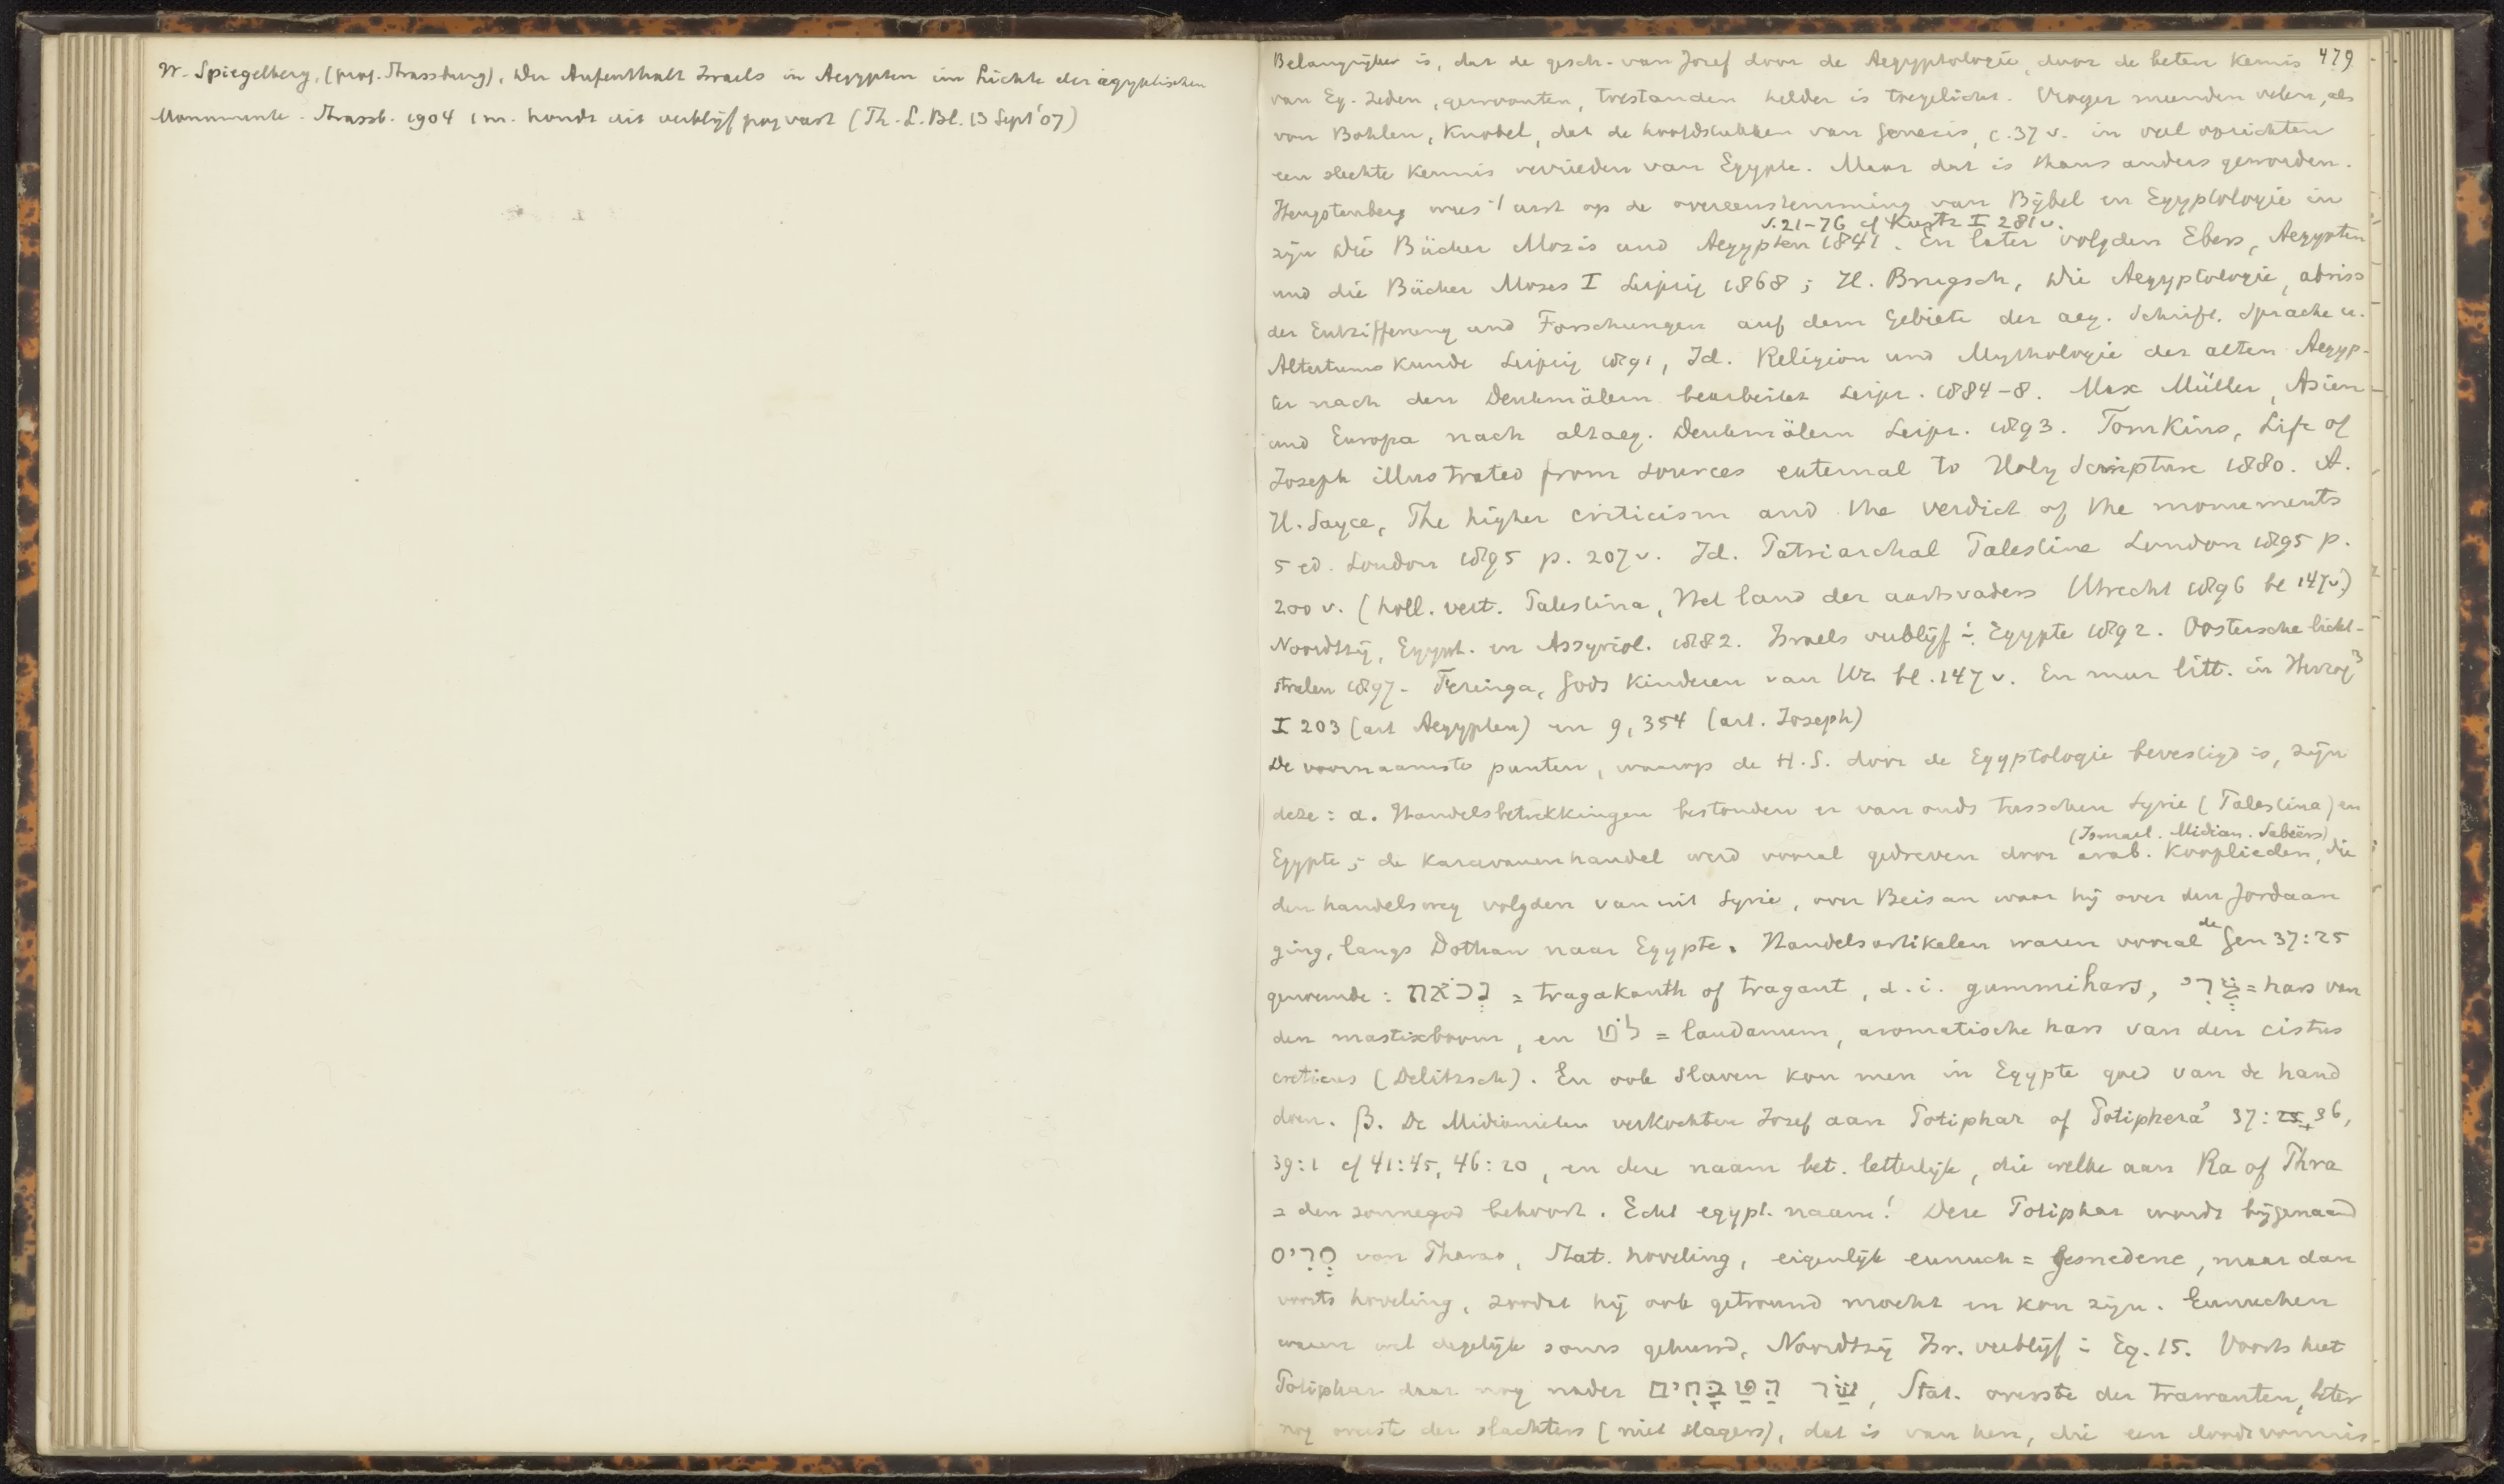 W. Spiegelberg, (prof. Strassburg), Der Aufenthalt Israels in Aegypten im Lichte der ägyptischen
Monumente. Strassb. 1904 1 m. houdt uit verblijf vast (Th. L. Bl. 13 Sept '07)
Belangrijker is, dat de gesch. van Jozef door de Aegyptologie, door de betere kennis 479
van Eg. zeden, gewoonten, toestanden helder is toegelicht. Vroeger meenden velen, als
von Bohlen, Knobel, dat de hoofdstukken van Genesis, c. 37 v. in veel opzichten
een slechte kennis verrieden van Egypte. Maar dat is thans anders geworden.
Hengstenberg wees 't eerst op de overeenstemming van Bijbel en Egyptologie in
S. 21-76 cf Kurtz I 281 v.
zijn Die Bücher Mosis und Aegypten 1841. En later volgden Ebers, Aegypten
und die Bücher Moses I Leipzig 1868; H. Brugsch, Die Aegyptologie, abriss
der Entzifferung und Forschungen auf dem Gebiete der aeg. Schrift. Sprache u.
Altertumskunde Leipzig 1891, Id. Religion und Mythologie der alten Aegyp-
ter nach den Denkmälern bearbeitet Leipz. 1884-8. Max Müller, Asien
und Europa nach altaeg. Denkmälern Leipz. 1893. Tomkins, Life of
Joseph illustrated from sources external to Holy Scripture 1880. A.
H. Sayce, The higher criticism and the verdict of the monuments
5 ed. London 1895 p. 207 v. Id. Patriarchal Palestine London 1895 p.
200 v. (holl. vert. Palestina, Het land der aartsvaders Utrecht 1896 bl 147 v.)
Noordtzij, Egypt. en Assyriol. 1882. Israels verblijf in Egypte 1892. Oostersche licht-
stralen 1897. Feringa, Gods kinderen van Ur bl. 147 v. En meer litt. in Herzog³
I 203 (art Aegypten) en 9, 354 (art. Joseph)
De voornaamste punten, waarop de H.S. door de Egyptologie bevestigd is, zijn
deze: α. Handelsbetrekkingen bestonden er van ouds tusschen Syrie (Palestina) en
(Ismael. Midian. Sabëers)
Egypte; de karavanenhandel werd vooral gedreven door arab. kooplieden, die
den handelsweg volgden van uit Syrie, over Beisan waar hij over den Jordaan
ging, langs Dothan naar Egypte. Handelsartikelen waren vooral de Gen 37:25
genoemde: נְכֹאת = tragakanth of tragant, d.i. gummihars, צֳרִי = hars van
den mastixboom, en לֹט = laudanum, aromatische hars van den cistus
creticus (Delitzsch). En ook slaven kon men in Egypte goed van de hand
doen. β. De Midianieten verkochten Jozef aan Potiphar of Potiphera' 37:25, 36,
39:1 cf 41:45, 46:20, en deze naam bet. letterlijk, die welke aan Ra of Phra
= den zonnegod behoort. Echt egypt. naam! Deze Potiphar wordt bijgenaamd
סְרִיס van Pharao, Stat. hoveling, eigenlijk eunuch = gesnedene, maar dan
voorts hoveling, zoodat hij ook getrouwd mocht en kon zijn. Eunuchen
waren wel degelijk soms gehuwd, Noordtzij Isr. verblijf in Eg. 15. Voorts heet
Potiphar daar nog nader שַׂר הַטַּבָּחִים, Stat. overste der trawanten, beter
nog overste der slachters (niet slagers), dat is van hen, die een doodvonnis